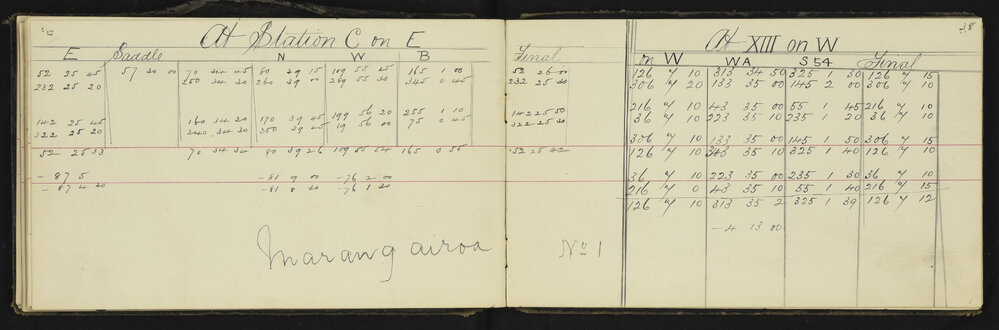 At Station C on E
E Saddle N W B Final
52 25 45 57 30 00 70 34 45 80 39 15 109 55 45 165 1 00 52 26 00
232 25 20 250 34 30 260 39 00 289 55 30 345 0 45 232 25 30
142 25 45 160 34 30 170 39 45 199 56 20 255 1 10 142 25 50
322 25 20 340 34 30 350 39 45 19 56 00 75 0 45 322 25 30
52 25 33 70 34 34 80 39 26 109 55 54 165 0 55 52 25 42
- 87 5 - 81 9 00 - 76 2 00
- 87 4 20 - 81 8 30 - 76 1 30
Marangairoa
No 1
38
At XIII on W
on W WA S 54 Final
126 7 10 313 34 50 325 1 30 126 7 15
306 7 20 133 35 00 145 2 00 306 7 10
216 7 10 43 35 00 55 1 45 216 7 10
36 7 10 223 35 10 235 1 20 36 7 10
306 7 10 133 35 00 145 1 50 306 7 15
126 7 10 313 35 10 325 1 40 126 7 10
36 7 10 223 35 00 235 1 30 36 7 10
216 7 0 43 35 10 55 1 40 216 7 15
126 7 10 313 35 2 325 1 39 126 7 12
- 4 13 00